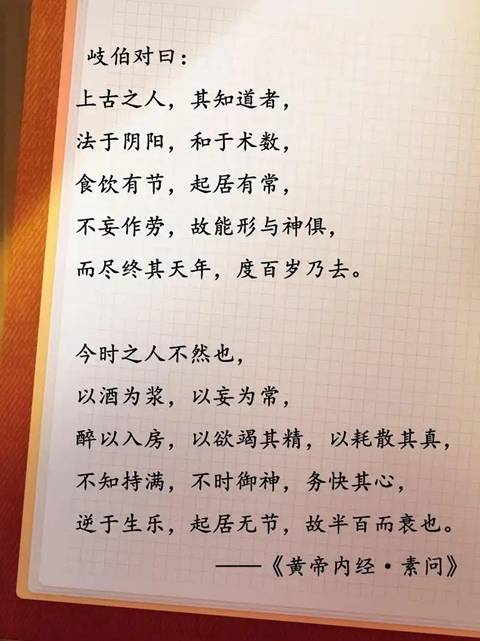 岐伯对曰：
上古之人，其知道者，
法于阴阳，和于术数，
食饮有节，起居有常，
不妄作劳，故能形与神俱，
而尽终其天年，度百岁乃去。
今时之人不然也，
以酒为浆，以妄为常，
醉以入房，以欲竭其精，以耗散其真，
不知持满，不时御神，务快其心，
逆于生乐，起居无节，故半百而衰也。
——《黄帝内经·素问》